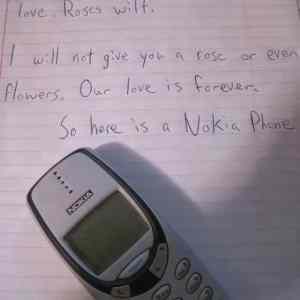 love. Roses wilt.
I will not give you a rose or even
flowers. Our love is forever.
So here is a Nokia Phone
NOKIA